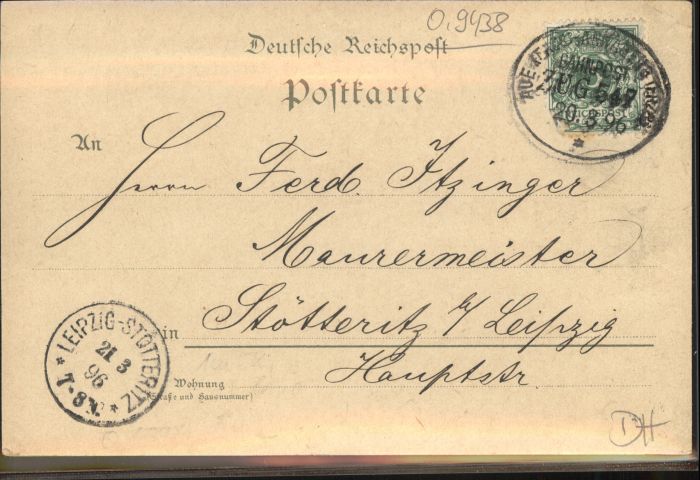 0.9438
Deutsche Reichspost
Postkarte
BAHNPOST
ZUG 547
20.3.96
REICHSPOST
An
Herrn Ferd. Itzinger
Maurermeister
in Stötteritz b/ Leipzig
Hauptstr.
Wohnung
(Straße und Hausnummer)
LEIPZIG-STÖTTERITZ
21 3
96
7-8N.
DH